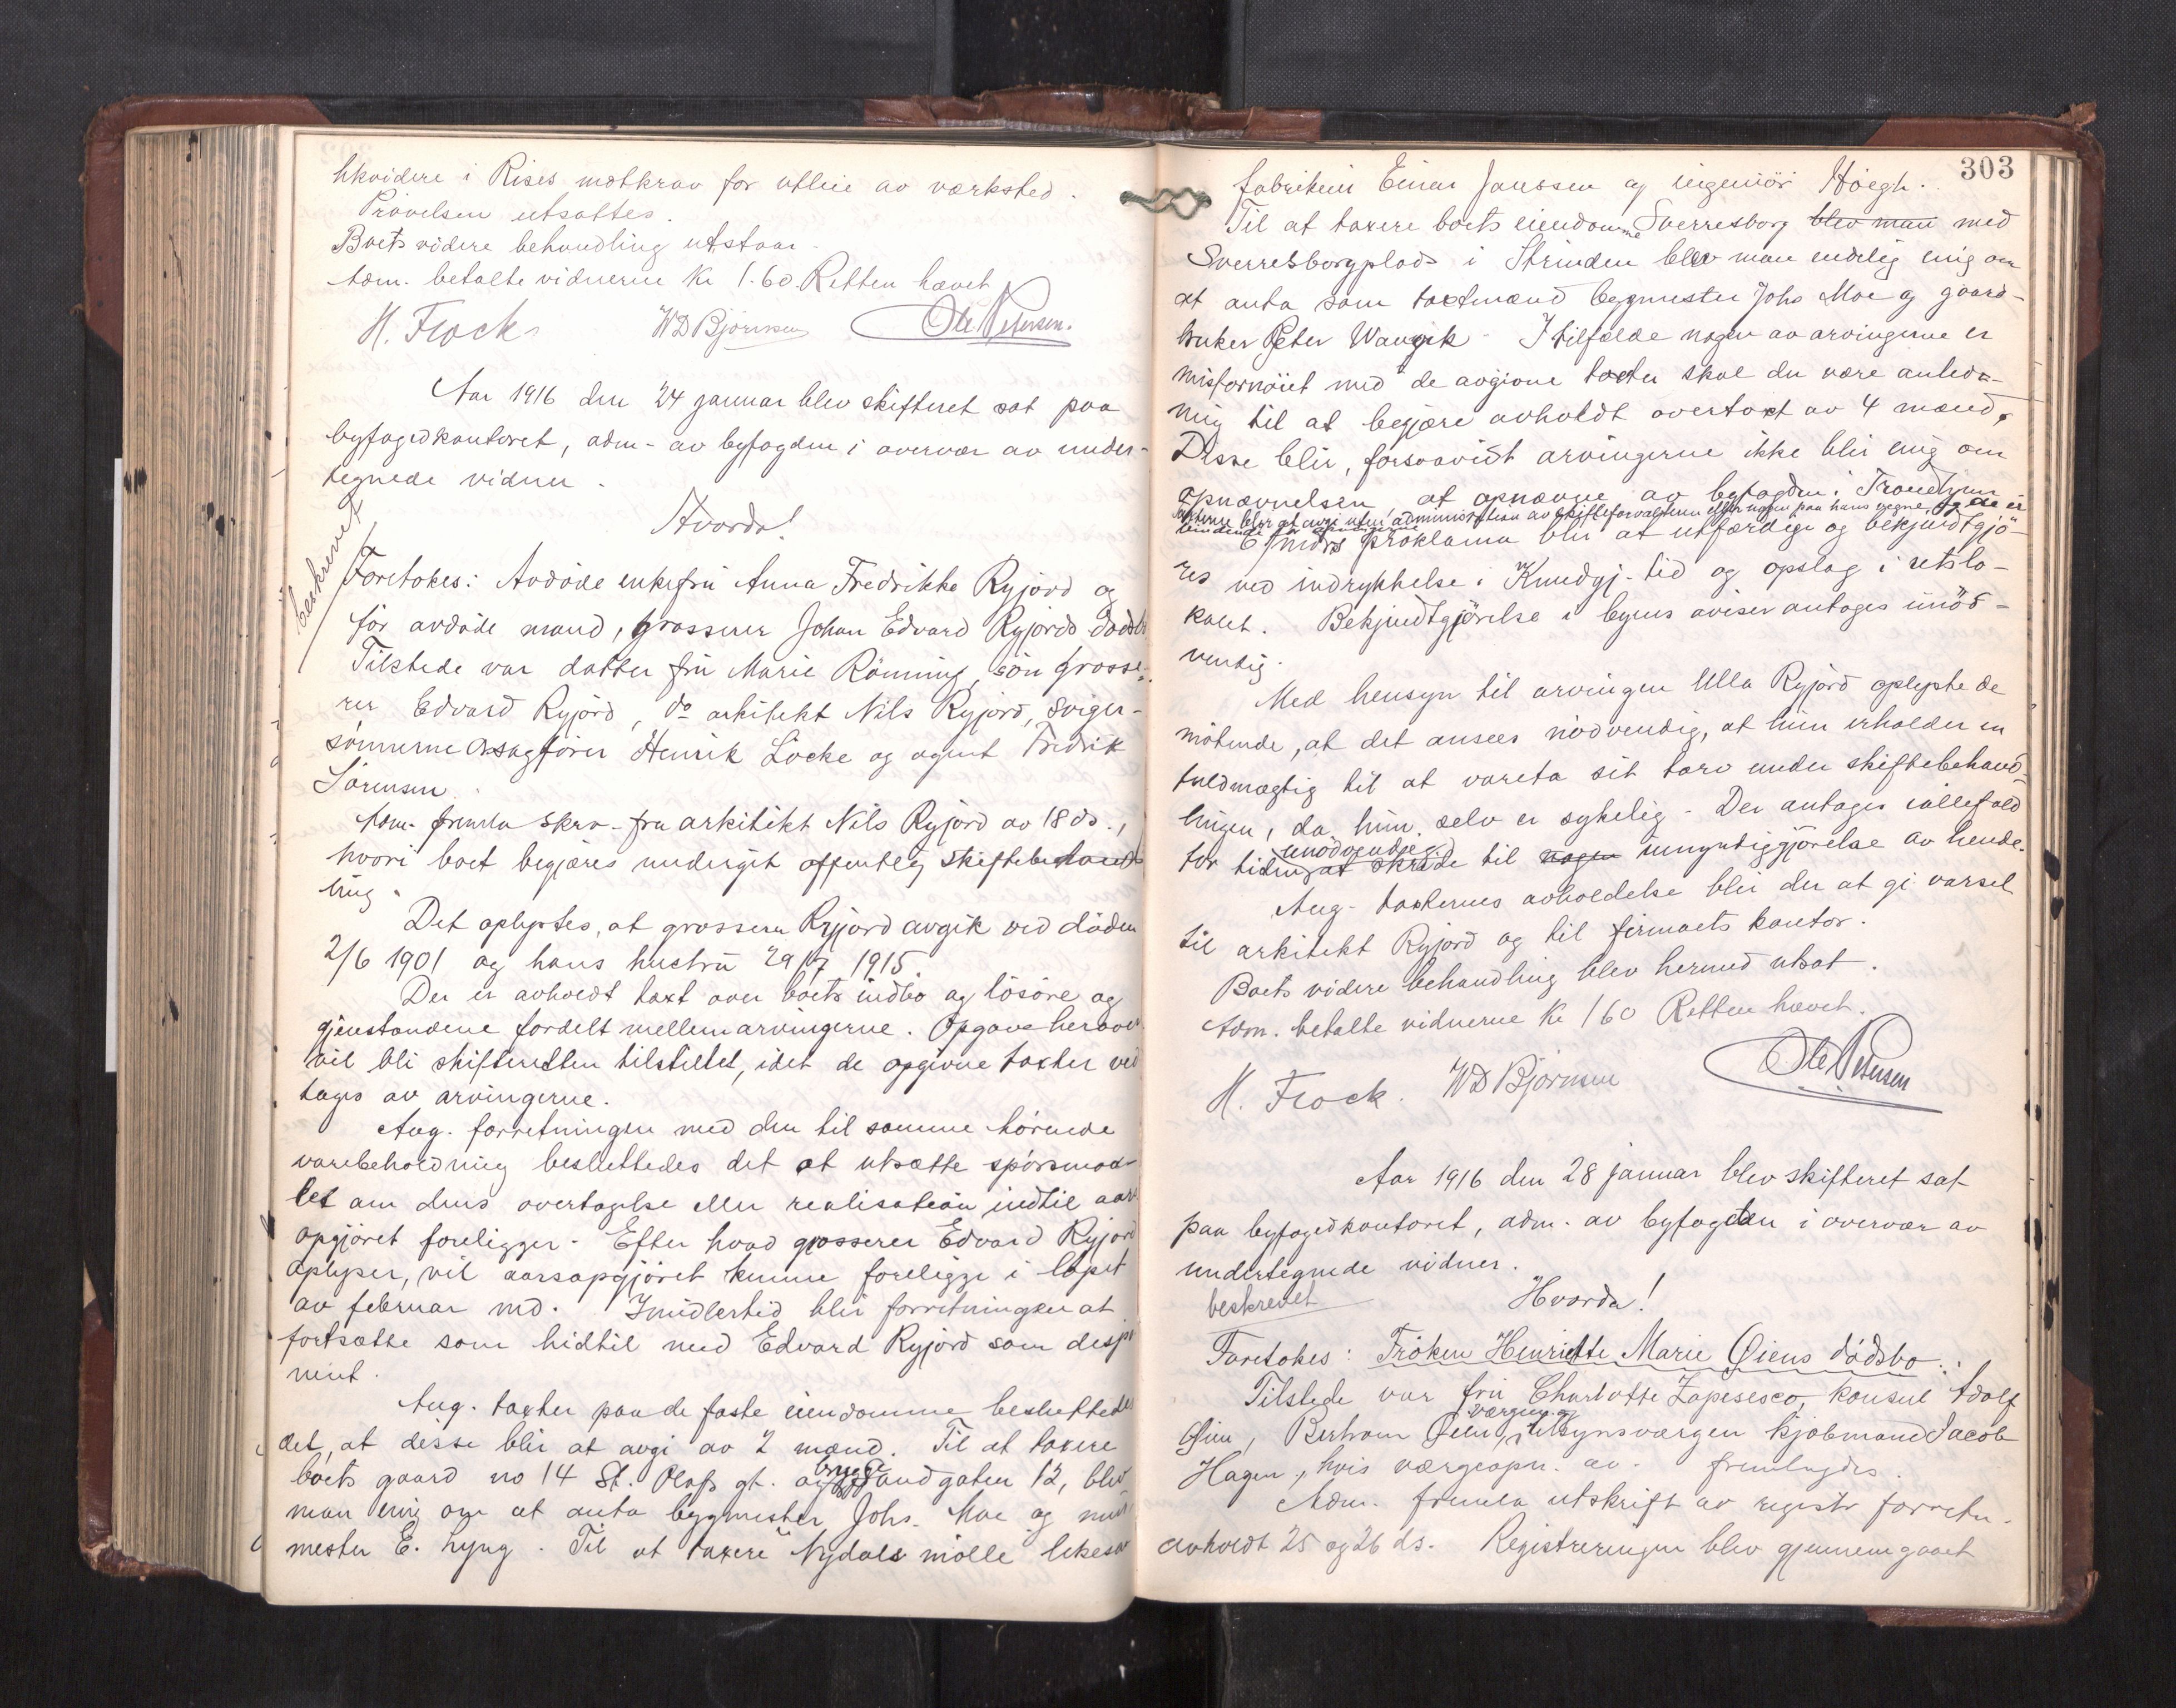 likvidere i Rises motkrav for utleie av værksted.
Prøvelsen utsattes.
Boets videre behandling utstaar.
Adm. betalte vidnerne Kr 1.60. Retten hævet
H. Frock WD Bjørnsen Ole Petersen.
Aar 1916 den 24 januar blev skifteret sat paa
byfogedkontoret, adm. av byfogden i overvær av under-
tegnede vidner.
Hvorda!
beskrevet
Foretokes: Avdøde enkefru Anna Fredrikke Ryjord og
før avdøde mand, grosserer Johan Edvard Ryjords dødsbo
Tilstede var datter fru Marie Rønning, søn grosse-
rer Edvard Ryjord, do arkitekt Nils Ryjord, sviger-
sønnerne o.r.sagfører Henrik Løcke og agent Fredrik
Sørensen.
Adm. fremla skr. fra arkitekt Nils Ryjord av 18 ds.,
hvori boet begjæres undergit offentlig skiftebehand-
ling.
Det oplystes, at grosserer Ryjord avgik ved døden
2/6 1901 og hans hustru 29/7 1915.
Der er avholdt taxt over boets indbo og løsøre og
gjenstandene fordelt mellem arvingerne. Opgave herover
vil bli skifteretten tilstillet, idet de opgivne taxter ved
tages av arvingerne.
Ang. forretningen med den til samme hørende
varebeholdning besluttedes det at utsætte spørsmaa-
let om dens overtagelse eller realisation indtil aars
opgjøret foreligger. Efter hvad grosserer Edvard Ryjord
oplyser, vil aarsopgjøret kunne foreligge i løpet
av februar md. Imidlertid blir forretningen at
fortsætte som hidtil med Edvard Ryjord som dispo
nent.
Ang. taxter paa de faste eiendomme besluttedes
det, at disse blir at avgi av 2 mænd. Til at taxere
boets gaard no 14 St. Olafs gt. og brygge Sandgaten 12, blev
man enig om at anta bygmester Johs. Moe og mur
mester E. Lyng. Til at taxere Nydals mølle likesaa
303
fabrikeier Einar Janssen og ingeniør Høegh.
Til at taxere boets eiendomme Sverresborg blev man med
Sverresborgplads i Strinden blev man endelig enig om
at anta som taxtmænd bygmester Johs Moe og gaard-
bruker Peter Wanvik. I tilfælde nogen av arvingerne er
misfornøiet med de avgivne taxter skal der være anled-
ning til at begjære avholdt overtaxt av 4 mænd,
Disse blir, forsaavidt arvingerne ikke blir enig om
opnævnelsen at opnævne av byfogden i Trondhjem
Taxterne blir at avgi uten administration av skifteforvalteren eller nogen paa hans vegne, og de er
bindende for arvingerne
6 mdrs proklama blir at utfærdige og bekjendtgjø-
res ved indrykkelse i Kundgj.-tid og opslag i retslo-
kalet. Bekjendtgjørelse i byens aviser antages unød-
vendig.
Med hensyn til arvingen Ulla Ryjord oplyste de
møtende, at det ansees nødvendig, at hun erholder en
fuldmægtig til at vareta sit tarv under skiftebehand-
lingen, da hun selv er sykelig. Der antages iallefald
for tiden unødvendig at skride til nogen umyndiggjørelse av hende.
Ang. taxternes avholdelse blir der at gi varsel
til arkitekt Ryjord og til firmaets kontor.
Boets videre behandling blev hermed utsat.
Adm. betalte vidnerne Kr 160 Retten hævet.
H. Frock. WD Bjørnsen Ole Petersen
Aar 1916 den 28 januar blev skifteret sat
paa byfogedkontoret, adm. av byfogden i overvær av
undertegnede vidner.
beskrevet Hvorda!
Foretokes: Frøken Henriette Marie Øiens dødsbo.
Tilstede var fru Charlotte Lapesesco, konsul Adolf
Øien, Bertram Øien, værgen og tilsynsværgen kjøbmand Jacob
Hagen, hvis værgeopn. av fremlagdes.
Adm. fremla utskrift av registr forretn.
avholdt 25 og 26 ds. Registreringen blev gjennemgaaet